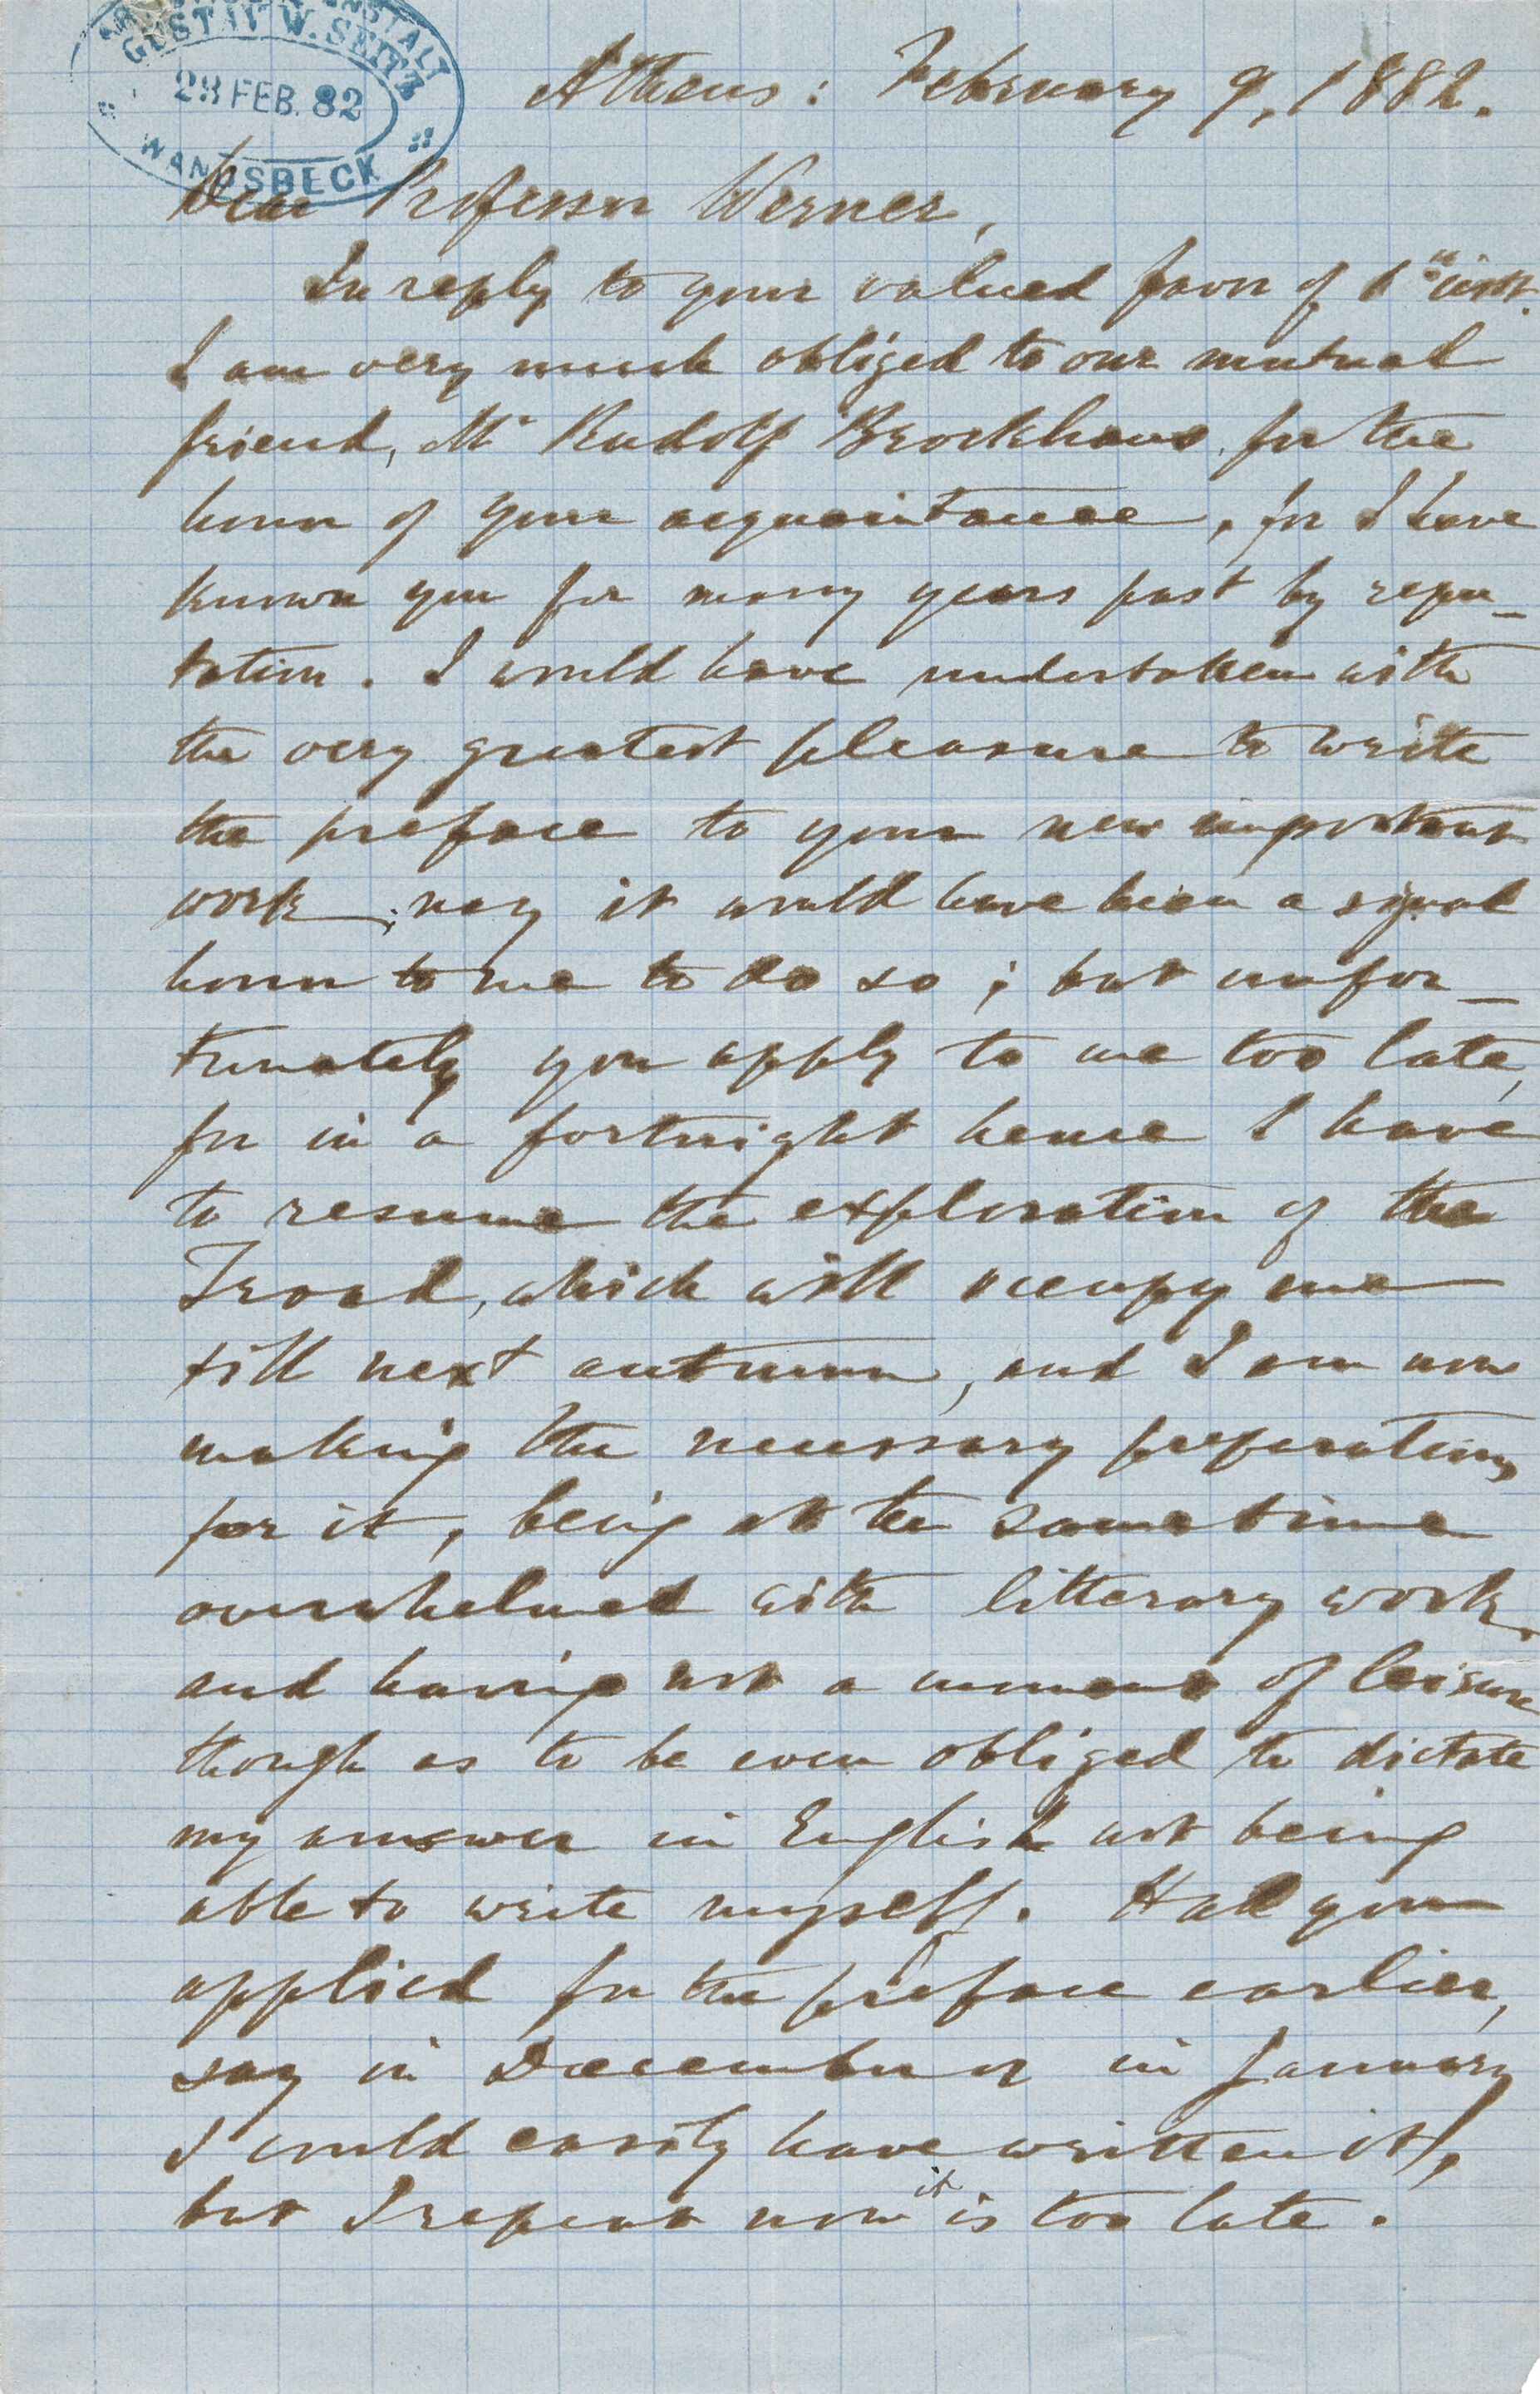 GUSTAV W. SEITZ
28 FEB. 82
WANDSBECK
Athens: February 9, 1882.
Dear Professor Werner,
In reply to your valued favor of 1" inst.
I am very much obliged to our mutual
friend, Mr Rudolf Brockhaus, for the
honor of your acquaintance, for I have
known you for many years past by repu-
tation. I would have undertaken with
the very greatest pleasure to write
the preface to your new important
work; nay it would have been a signal
honor to me to do so; but unfor-
tunately you apply to me too late,
for in a fortnight hence I have
to resume the exploration of the
Troad, which will occupy me
till next autumn, and I am now
making the necessary preparations
for it, being at the same time
overwhelmed with litterary work
and having not a moment of leisure
though as to be even obliged to dictate
my answer in English not being
able to write myself. Had you
applied for the preface earlier,
say in December or in January
I could easily have written it,
but I repeat now it is too late.